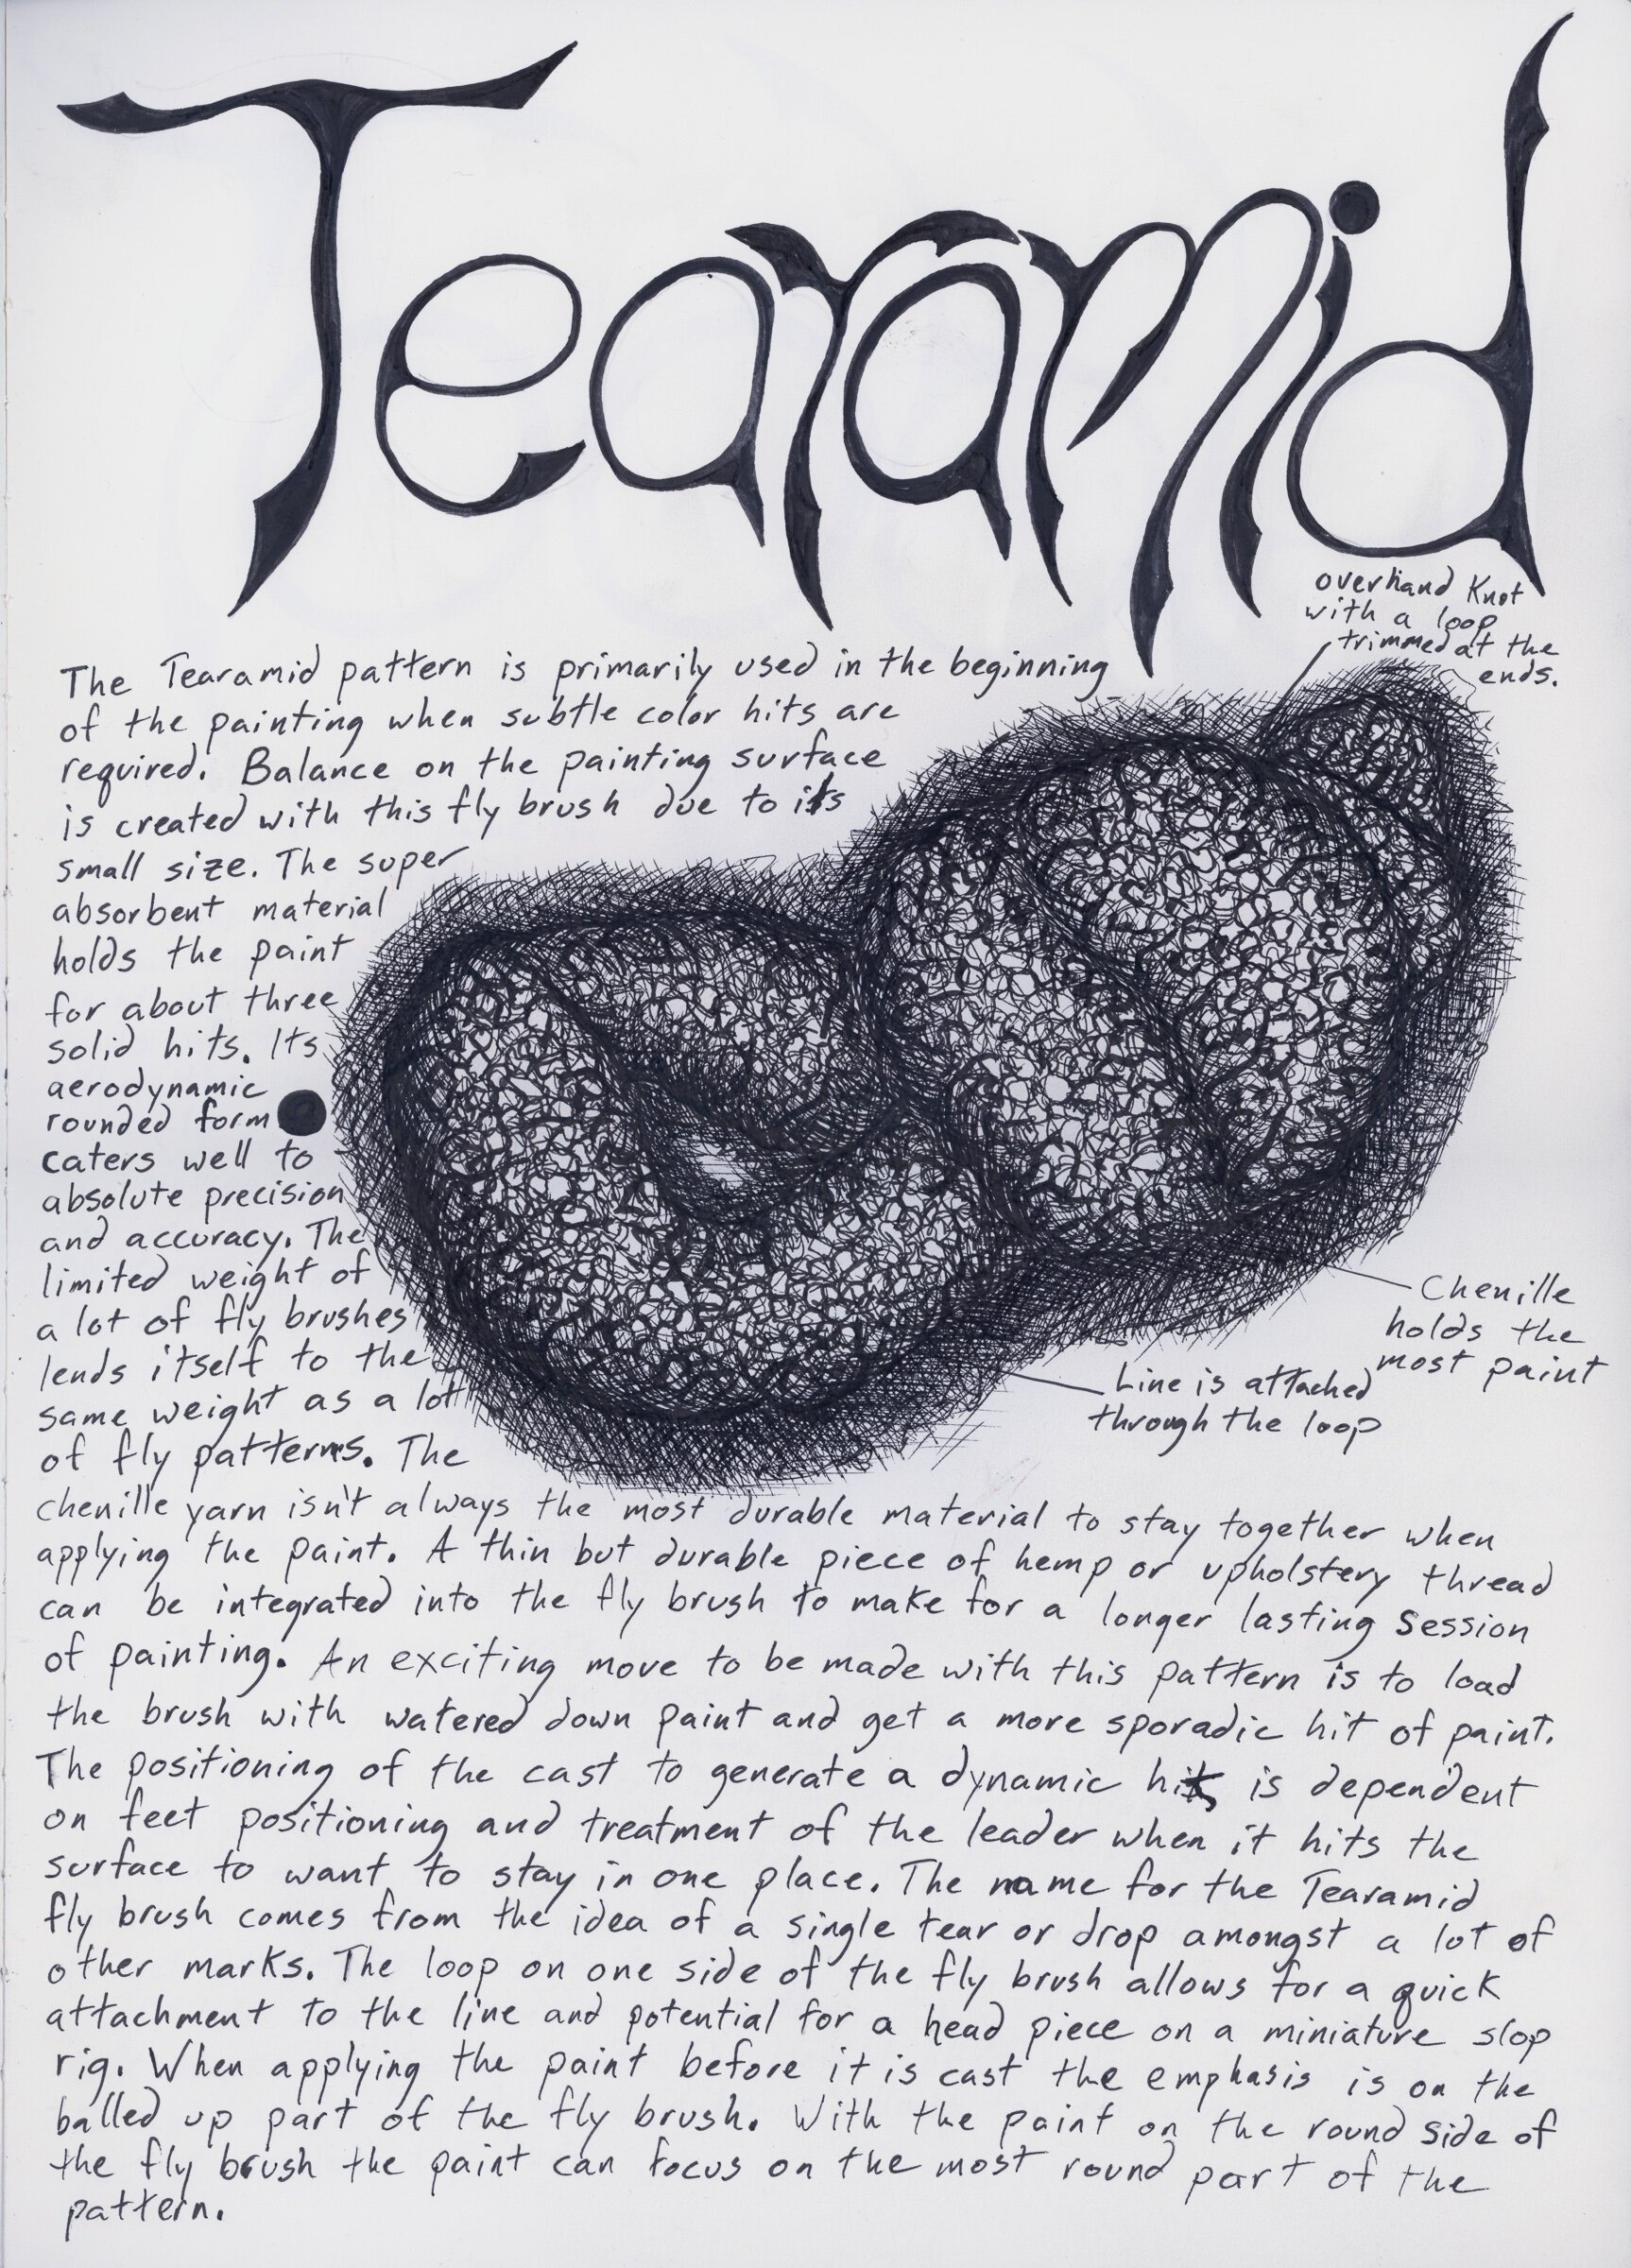 Tearamid
overhand Knot
with a loop
trimmed at the
ends.
The Tearamid pattern is primarily used in the beginning
of the painting when subtle color hits are
required. Balance on the painting surface
is created with this fly brush due to its
small size. The super
absorbent material
holds the paint
for about three
solid hits. Its
aerodynamic
rounded form
caters well to
absolute precision
and accuracy. The
limited weight of
a lot of fly brushes
lends itself to the
same weight as a lot
of fly patterns. The
Chenille
holds the
most paint
Line is attached
through the loop
chenille yarn isn't always the most durable material to stay together when
applying the paint. A thin but durable piece of hemp or upholstery thread
can be integrated into the fly brush to make for a longer lasting session
of painting. An exciting move to be made with this pattern is to load
the brush with watered down paint and get a more sporadic hit of paint.
The positioning of the cast to generate a dynamic hit is dependent
on feet positioning and treatment of the leader when it hits the
surface to want to stay in one place. The name for the Tearamid
fly brush comes from the idea of a single tear or drop amongst a lot of
other marks. The loop on one side of the fly brush allows for a quick
attachment to the line and potential for a head piece on a miniature slop
rig. When applying the paint before it is cast the emphasis is on the
balled up part of the fly brush. With the paint on the round side of
the fly brush the paint can focus on the most round part of the
pattern.